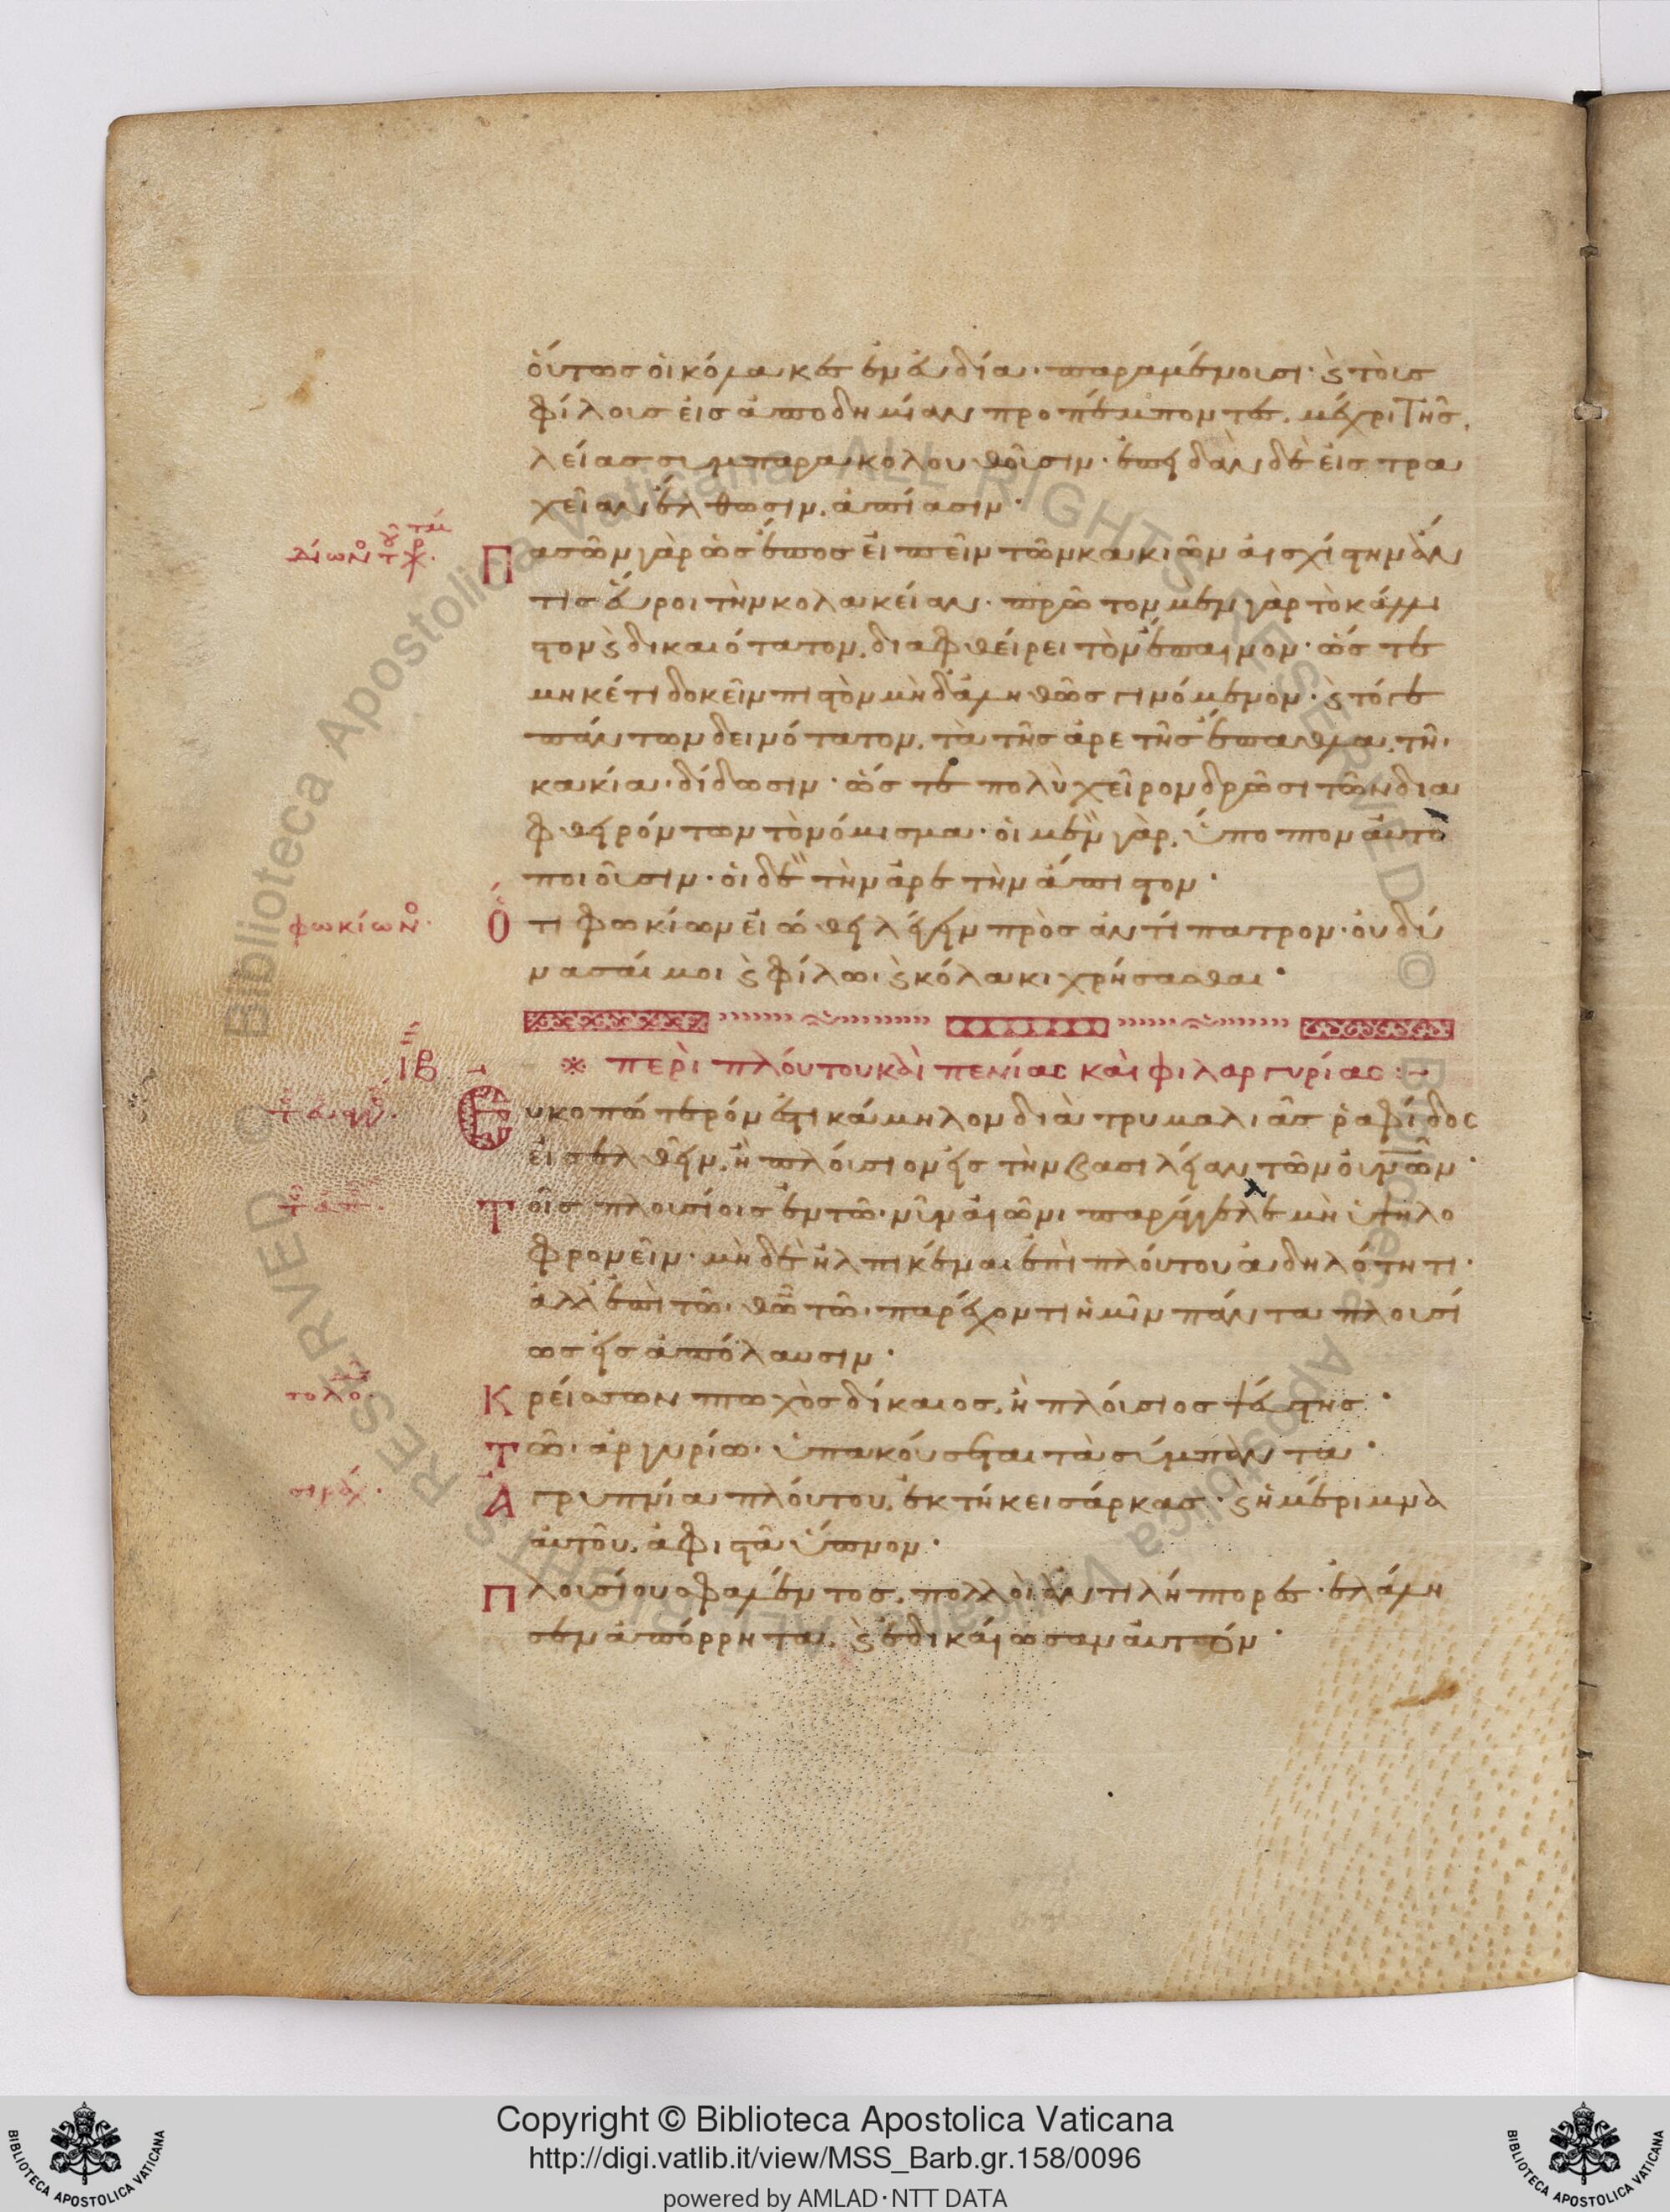 οὕτως οἱ κόλακες ἐν εὐδία· παραμένουσι· ϛ τοὺς
φίλους εἰς ἀποδημίαν προπέμποντες, μέχρι τῆς
λείας συμπαρακολουθοῦσιν· ἐπειδὰν δὲ εἰς τρα
χεῖαν ἔλθωσιν, ἀπίασιν·
Πασῶν γὰρ ὡς ἔπος εἰπεῖν τῶν κακιῶν αἰσχίστην ἄν
τις εὕροι τὴν κολακείαν· πρῶτον μὲν γὰρ τὸ κάλλι
στον ϛ δικαιότατον, διαφθείρει τὸν ἔπαινον· ὥστε
μηκέτι δοκεῖν πιστὸν μὴδ' ἀληθῶς γινόμενον· ϛ τόγε
πάντων δεινότατον, τὰ τῆς ἀρετῆς ἔπαθλα, τῆ·
κακία· δίδωσιν· ὥστε πολὺ χεῖρον δρῶσι τῶν δια
φθειρόντων τὸ νόμισμα· οἱ μὲν γὰρ, ὕποπτον αὐτὸ
ποιοῦσιν· οἱ δὲ τὴν ἀρετὴν ἄπιστον·
φωκίων
Ὅτι φωκίων εἰώθει λέγειν πρὸς ἀντίπατρον· οὐ δύ
νασαί μοι ϛ φίλω· ϛ κόλακι χρήσασθαι·
ιβ
※ περὶ πλούτου καὶ πενίας καὶ φιλαργυρίας :-
Εὐκοπώτερόν ἐστι κάμηλον διὰ τρυμαλιᾶς ῥαφίδος
εἰσελθεῖν, ἢ πλούσιον εἰς τὴν βασιλείαν τῶν οὐνῶν·
Τοῖς πλουσίοις ἐν τῶ· νῦν αἰῶνι παράγγελε μὴ ὑψηλο
φρονεῖν· μὴδὲ ἠλπικέναι ἐπὶ πλούτου ἀδηλότητι·
ἀλλ' ἐπὶ τῶ· θῶ τῶ· παρέχοντι ἡμῖν πάντα πλουσί
ως εἰς ἀπόλαυσιν·
σολο
Κρείσσων πτωχὸς δίκαιος, ἢ πλούσιος ψεύστης·
Τῶ· ἀργυρίω· ὑπακούσεται τὰ σύμπαντα·
σιραχ
Ἀγρυπνία πλούτου, ἐκτήκει σάρκας· ϛ ἡ μέριμνα
αὐτοῦ, ἀφιστᾶ ὕπνον·
Πλουσίου σφαλέντος, πολλοὶ ἀντιλήπτορες· ἐλάλη
σεν ἀπόρρητα, ϛ ἐδικαίωσαν αὐτόν·
Copyright © Biblioteca Apostolica Vaticana
http://digi.vatlib.it/view/MSS_Barb.gr.158/0096
powered by AMLAD·NTT DATA